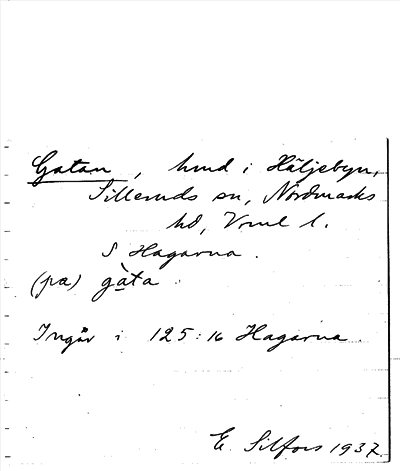 Gatan, hmd i Häljebyn,
Silleruds sn, Nordmarks
hd, Vrml l.
S Hagarna.
(pa) gàta
Ingår i 125:16 Hagarna.
E. Silfors 1937